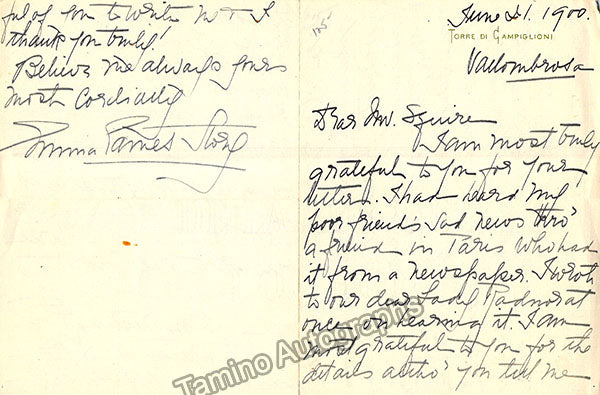 June 21. 1900.
TORRE DI CAMPIGLIONI
Vallombrosa
Dear Mr. Squire
I am most truly
grateful to you for your
letter. I had heard my
poor friend's sad news thro'
a friend in Paris who had
it from a newspaper. I wrote
to our dear Lady Radnor at
once on hearing it. I am
most grateful to you for the
details altho' you tell me
ful of you to write me & I
thank you truly!
Believe me always yours
most cordially
Emma Eames Story
125-
Tamino Autographs